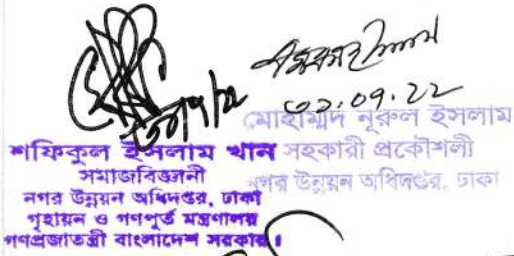 ০১.০৭.২২
শফিকুল ইসলাম খান
সমাজবিজ্ঞানী
নগর উন্নয়ন অধিদপ্তর, ঢাকা
গৃহায়ন ও গণপূর্ত মন্ত্রণালয়
গণপ্রজাতন্ত্রী বাংলাদেশ সরকার।
মোহাম্মদ নূরুল ইসলাম
সহকারী প্রকৌশলী
নগর উন্নয়ন অধিদপ্তর, ঢাকা